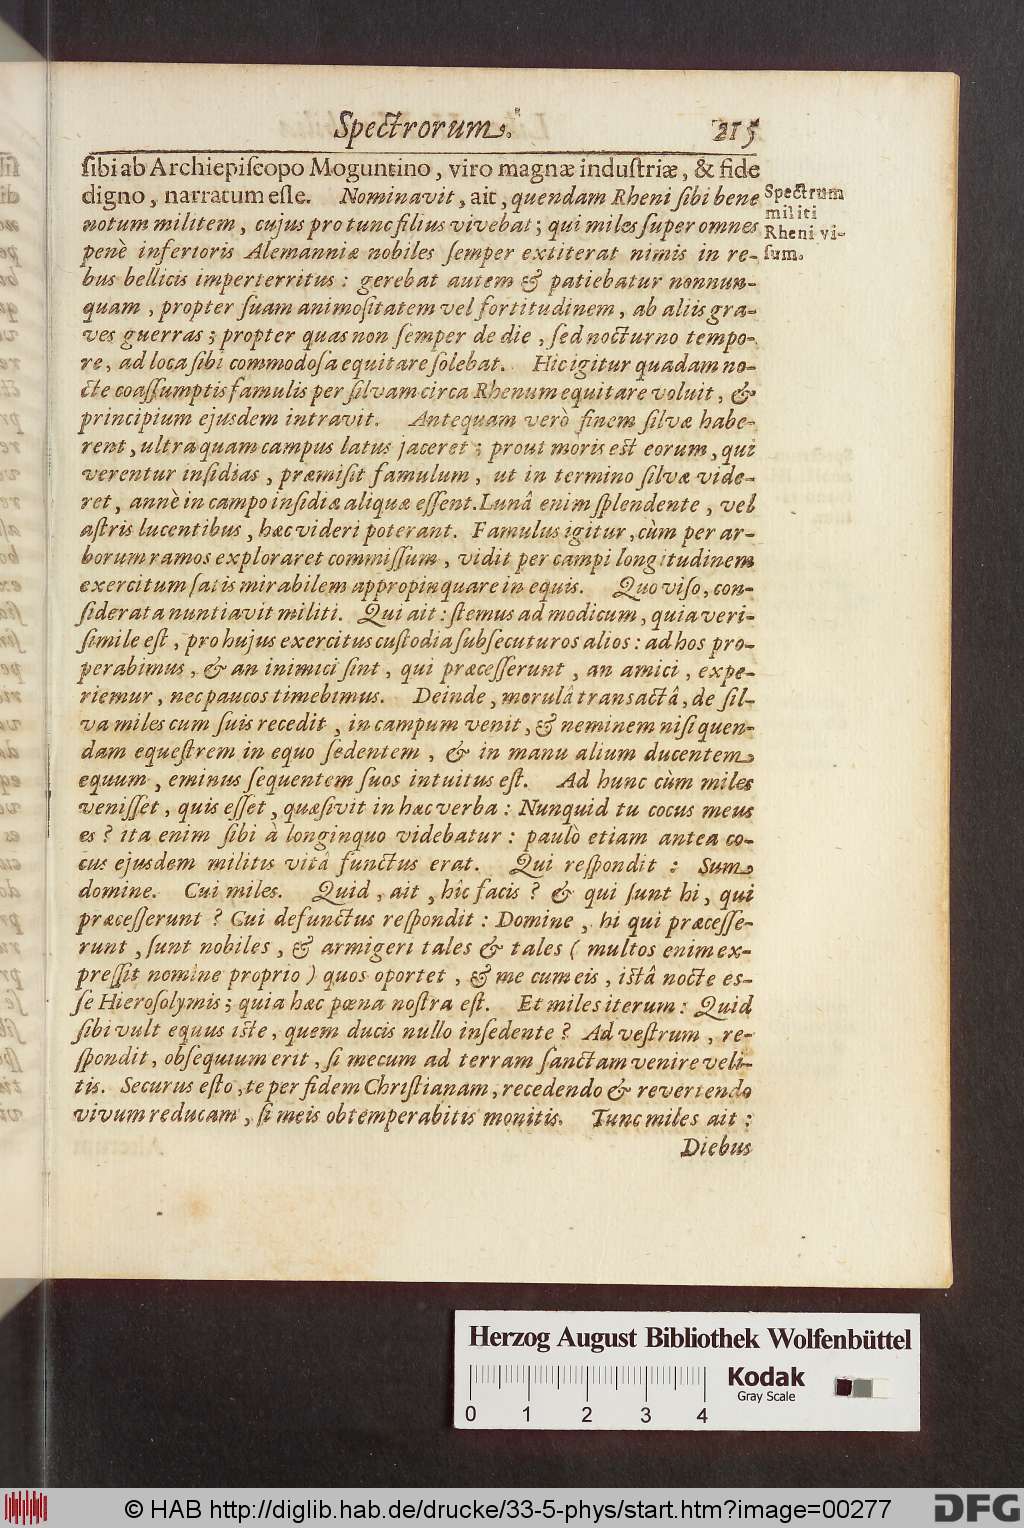 Spectrorum. 215
ſibi ab Archiepiſcopo Moguntino, viro magnæ induſtriæ, & fide
digno, narratum eſſe. Nominavit, ait, quendam Rheni ſibi bene
notum militem, cujus pro tunc filius vivebat; qui miles ſuper omnes
penè inferioris Alemanniæ nobiles ſemper extiterat nimis in re-
bus bellicis imperterritus: gerebat autem & patiebatur nonnun-
quam, propter ſuam animoſitatem vel fortitudinem, ab aliis gra-
ves guerras; propter quas non ſemper de die, ſed nocturno tempo-
re, ad loca ſibi commodoſa equitare ſolebat. Hic igitur quadam no-
cte coaſſumptis famulis per ſilvam circa Rhenum equitare voluit, &
principium ejusdem intravit. Antequam verò finem ſilvæ habe-
rent, ultra quam campus latus jaceret; prout moris est eorum, qui
verentur inſidias, præmiſit famulum, ut in termino ſilvæ vide-
ret, annè in campo inſidiæ aliquæ eſſent. Lunâ enim ſplendente, vel
aſtris lucentibus, hæc videri poterant. Famulus igitur, cùm per ar-
borum ramos exploraret commiſſum, vidit per campi longitudinem
exercitum ſatis mirabilem appropinquare in equis. Quo viſo, con-
ſiderata nuntiavit militi. Qui ait: ſtemus ad modicum, quia veri-
ſimile eſt, pro hujus exercitus cuſtodia ſubſecuturos alios: ad hos pro-
perabimus, & an inimici ſint, qui præceſſerunt, an amici, expe-
riemur, nec paucos timebimus. Deinde, morulâ transactâ, de ſil-
va miles cum ſuis recedit, in campum venit, & neminem niſi quen-
dam equeſtrem in equo ſedentem, & in manu alium ducentem
equum, eminus ſequentem ſuos intuitus eſt. Ad hunc cùm miles
veniſſet, quis eſſet, quæſivit in hæc verba: Nunquid tu cocus meus
es? ita enim ſibi à longinquo videbatur: paulò etiam antea co-
cus ejusdem militis vitâ functus erat. Qui reſpondit: Sum
domine. Cui miles. Quid, ait, hîc facis? & qui ſunt hi, qui
præceſſerunt? Cui defunctus reſpondit: Domine, hi qui præceſſe-
runt, ſunt nobiles, & armigeri tales & tales (multos enim ex-
preſſit nomine proprio) quos oportet, & me cum eis, iſtâ nocte es-
ſe Hieroſolymis; quia hæc pœna noſtra eſt. Et miles iterum: Quid
ſibi vult equus iſte, quem ducis nullo inſedente? Ad veſtrum, re-
ſpondit, obſequium erit, ſi mecum ad terram ſanctam venire veli-
tis. Securus eſto, te per fidem Chriſtianam, recedendo & revertendo
vivum reducam, ſi meis obtemperabitis monitis. Tunc miles ait:
Diebus
Spectrum
militi
Rheni vi-
ſum.
Herzog August Bibliothek Wolfenbüttel
Kodak
Gray Scale
0 1 2 3 4
© HAB http://diglib.hab.de/drucke/33-5-phys/start.htm?image=00277
DFG